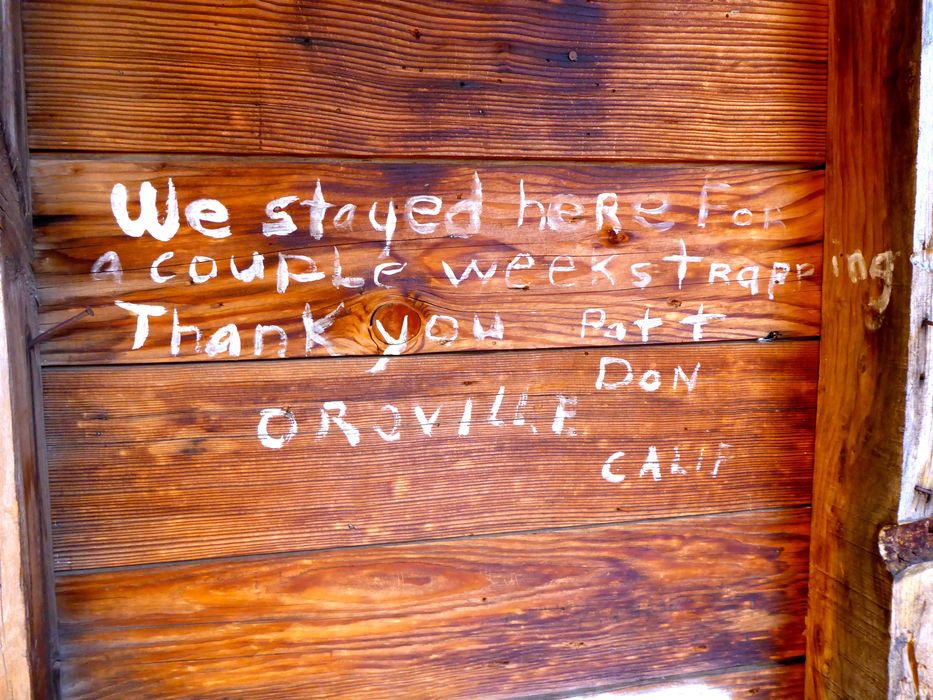 We stayed heRe FoR
a couple weeks tRapping
Thank you Patt
DON
OROVILLE
CALIF